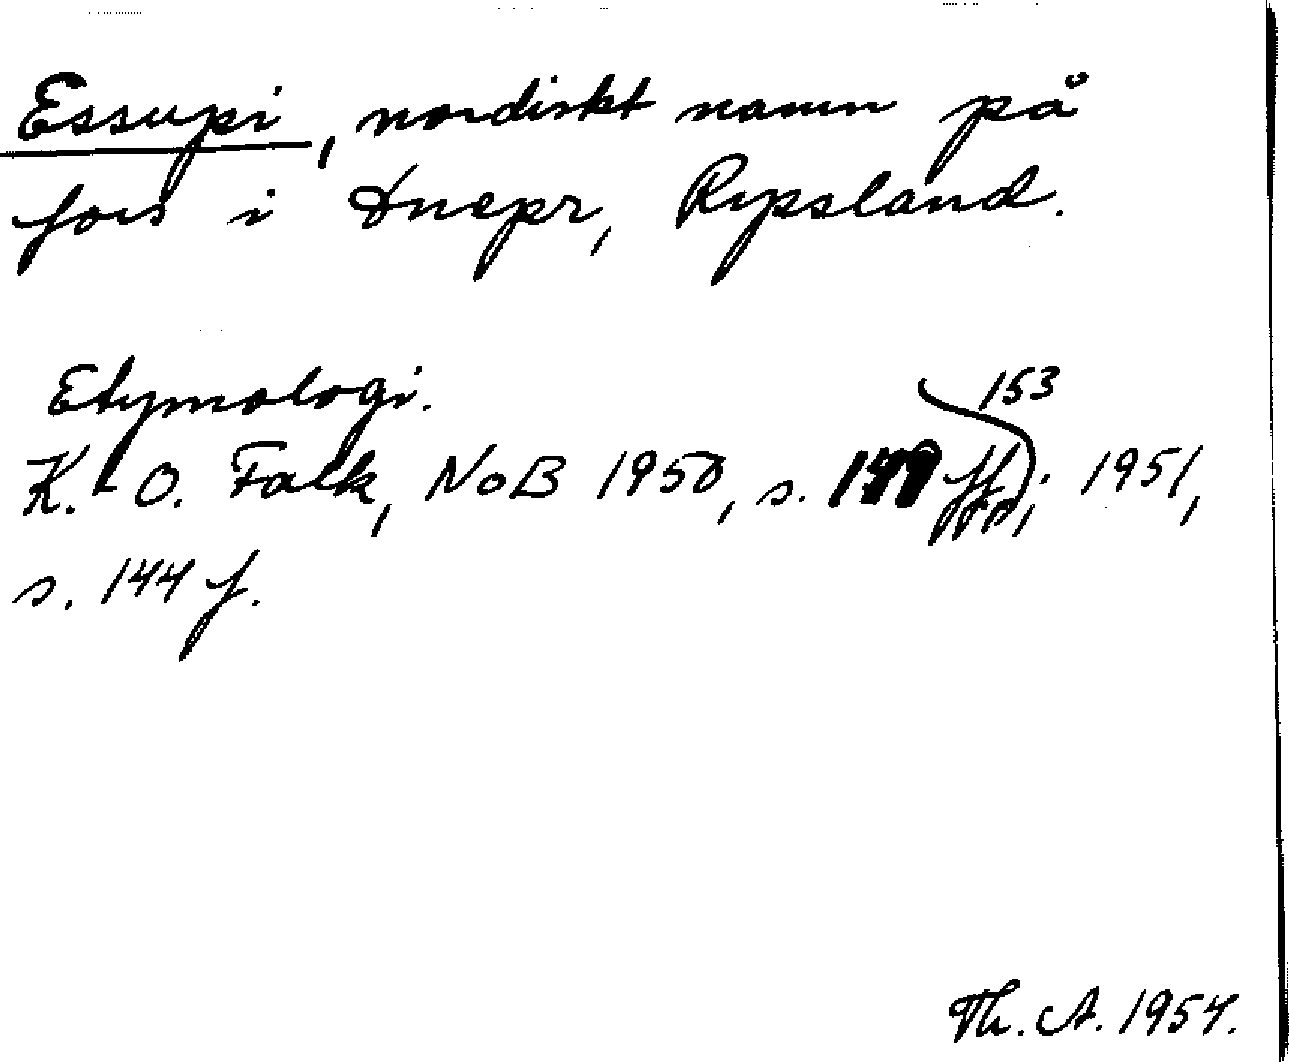 Essupi, nordiskt namn på
fors i Dnepr, Ryssland.
Etymologi.
153
K.-O. Falk, NoB 1950, s. ff.; 1951,
s. 144 f.
Th. A. 1954.